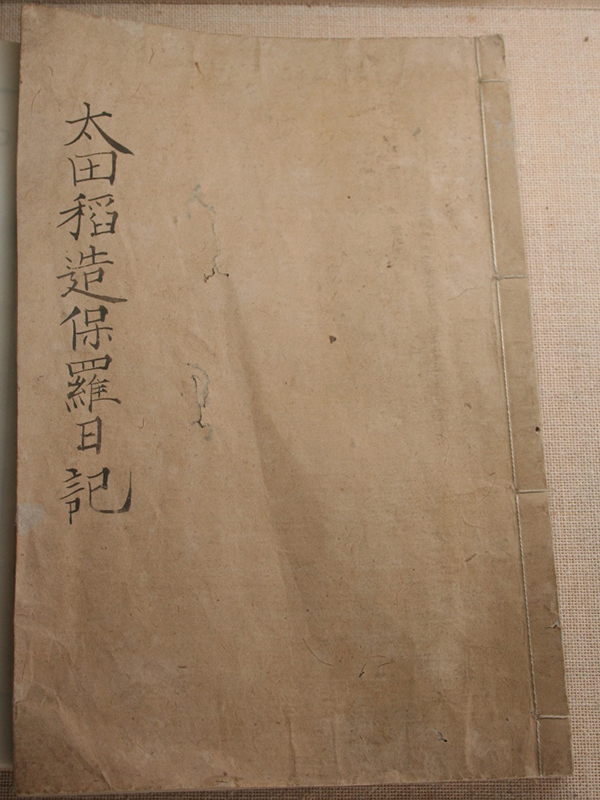 太田稻造保羅日記